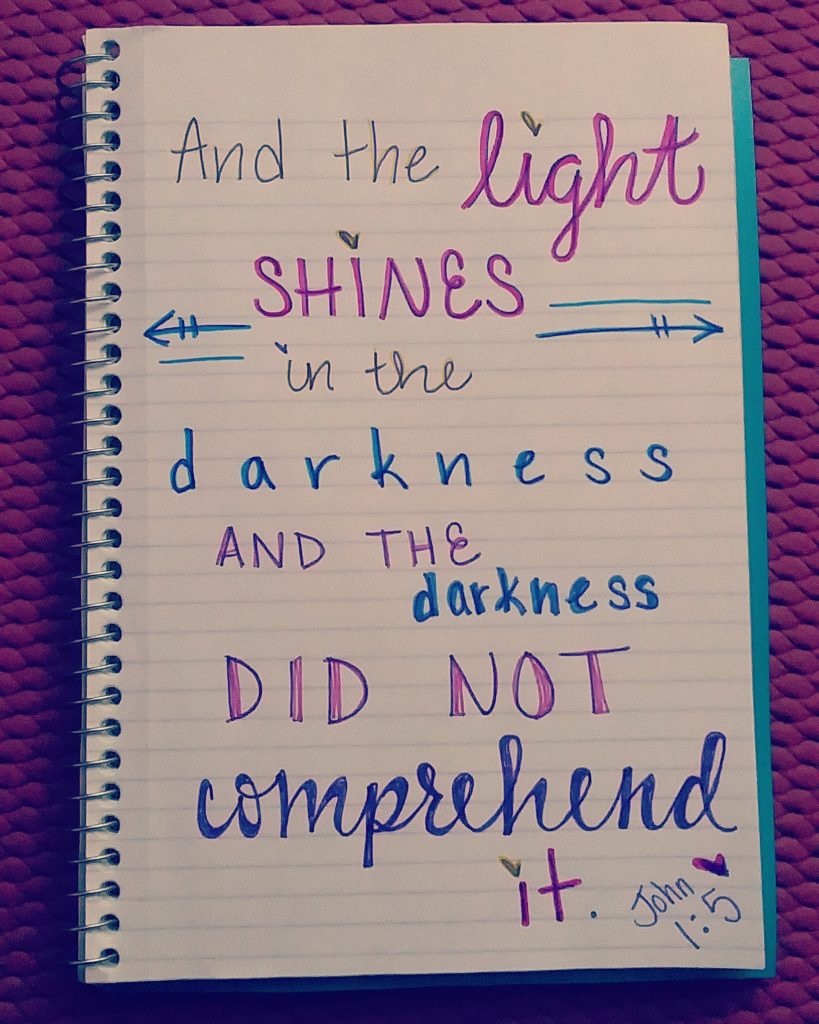 And the light
SHINES
in the
darkness
AND THE
darkness
DID NOT
comprehend
it.
John
1:5